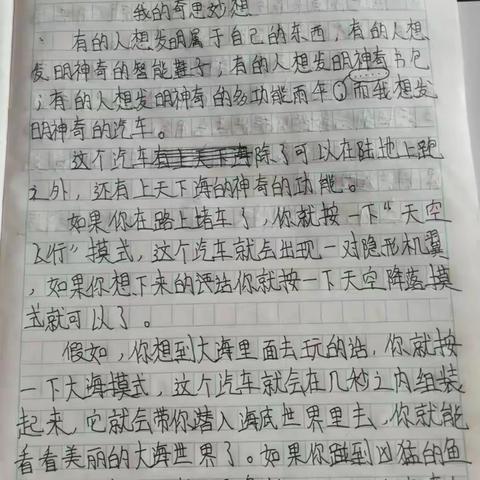 我的奇思妙想
有的人想发明属于自己的东西，有的人想
发明神奇的智能鞋子；有的人想发明神奇书包
；有的人想发明神奇的多功能雨伞，而我想发
明神奇的汽车。
这个汽车除了可以在陆地上跑
之外，还有上天下海的神奇的功能。
如果你在路上堵车了，你就按一下“天空
飞行”模式，这个汽车就会出现一对隐形机翼
，如果你想下来的话你就按一下天空降落模
式就可以了。
假如，你想到大海里面去玩的话，你就按
一下大海模式，这个汽车就会在几秒之内组装
起来，它就会带你潜入海底世界里去，你就能
看看美丽的大海世界了。如果你碰到凶猛的鱼